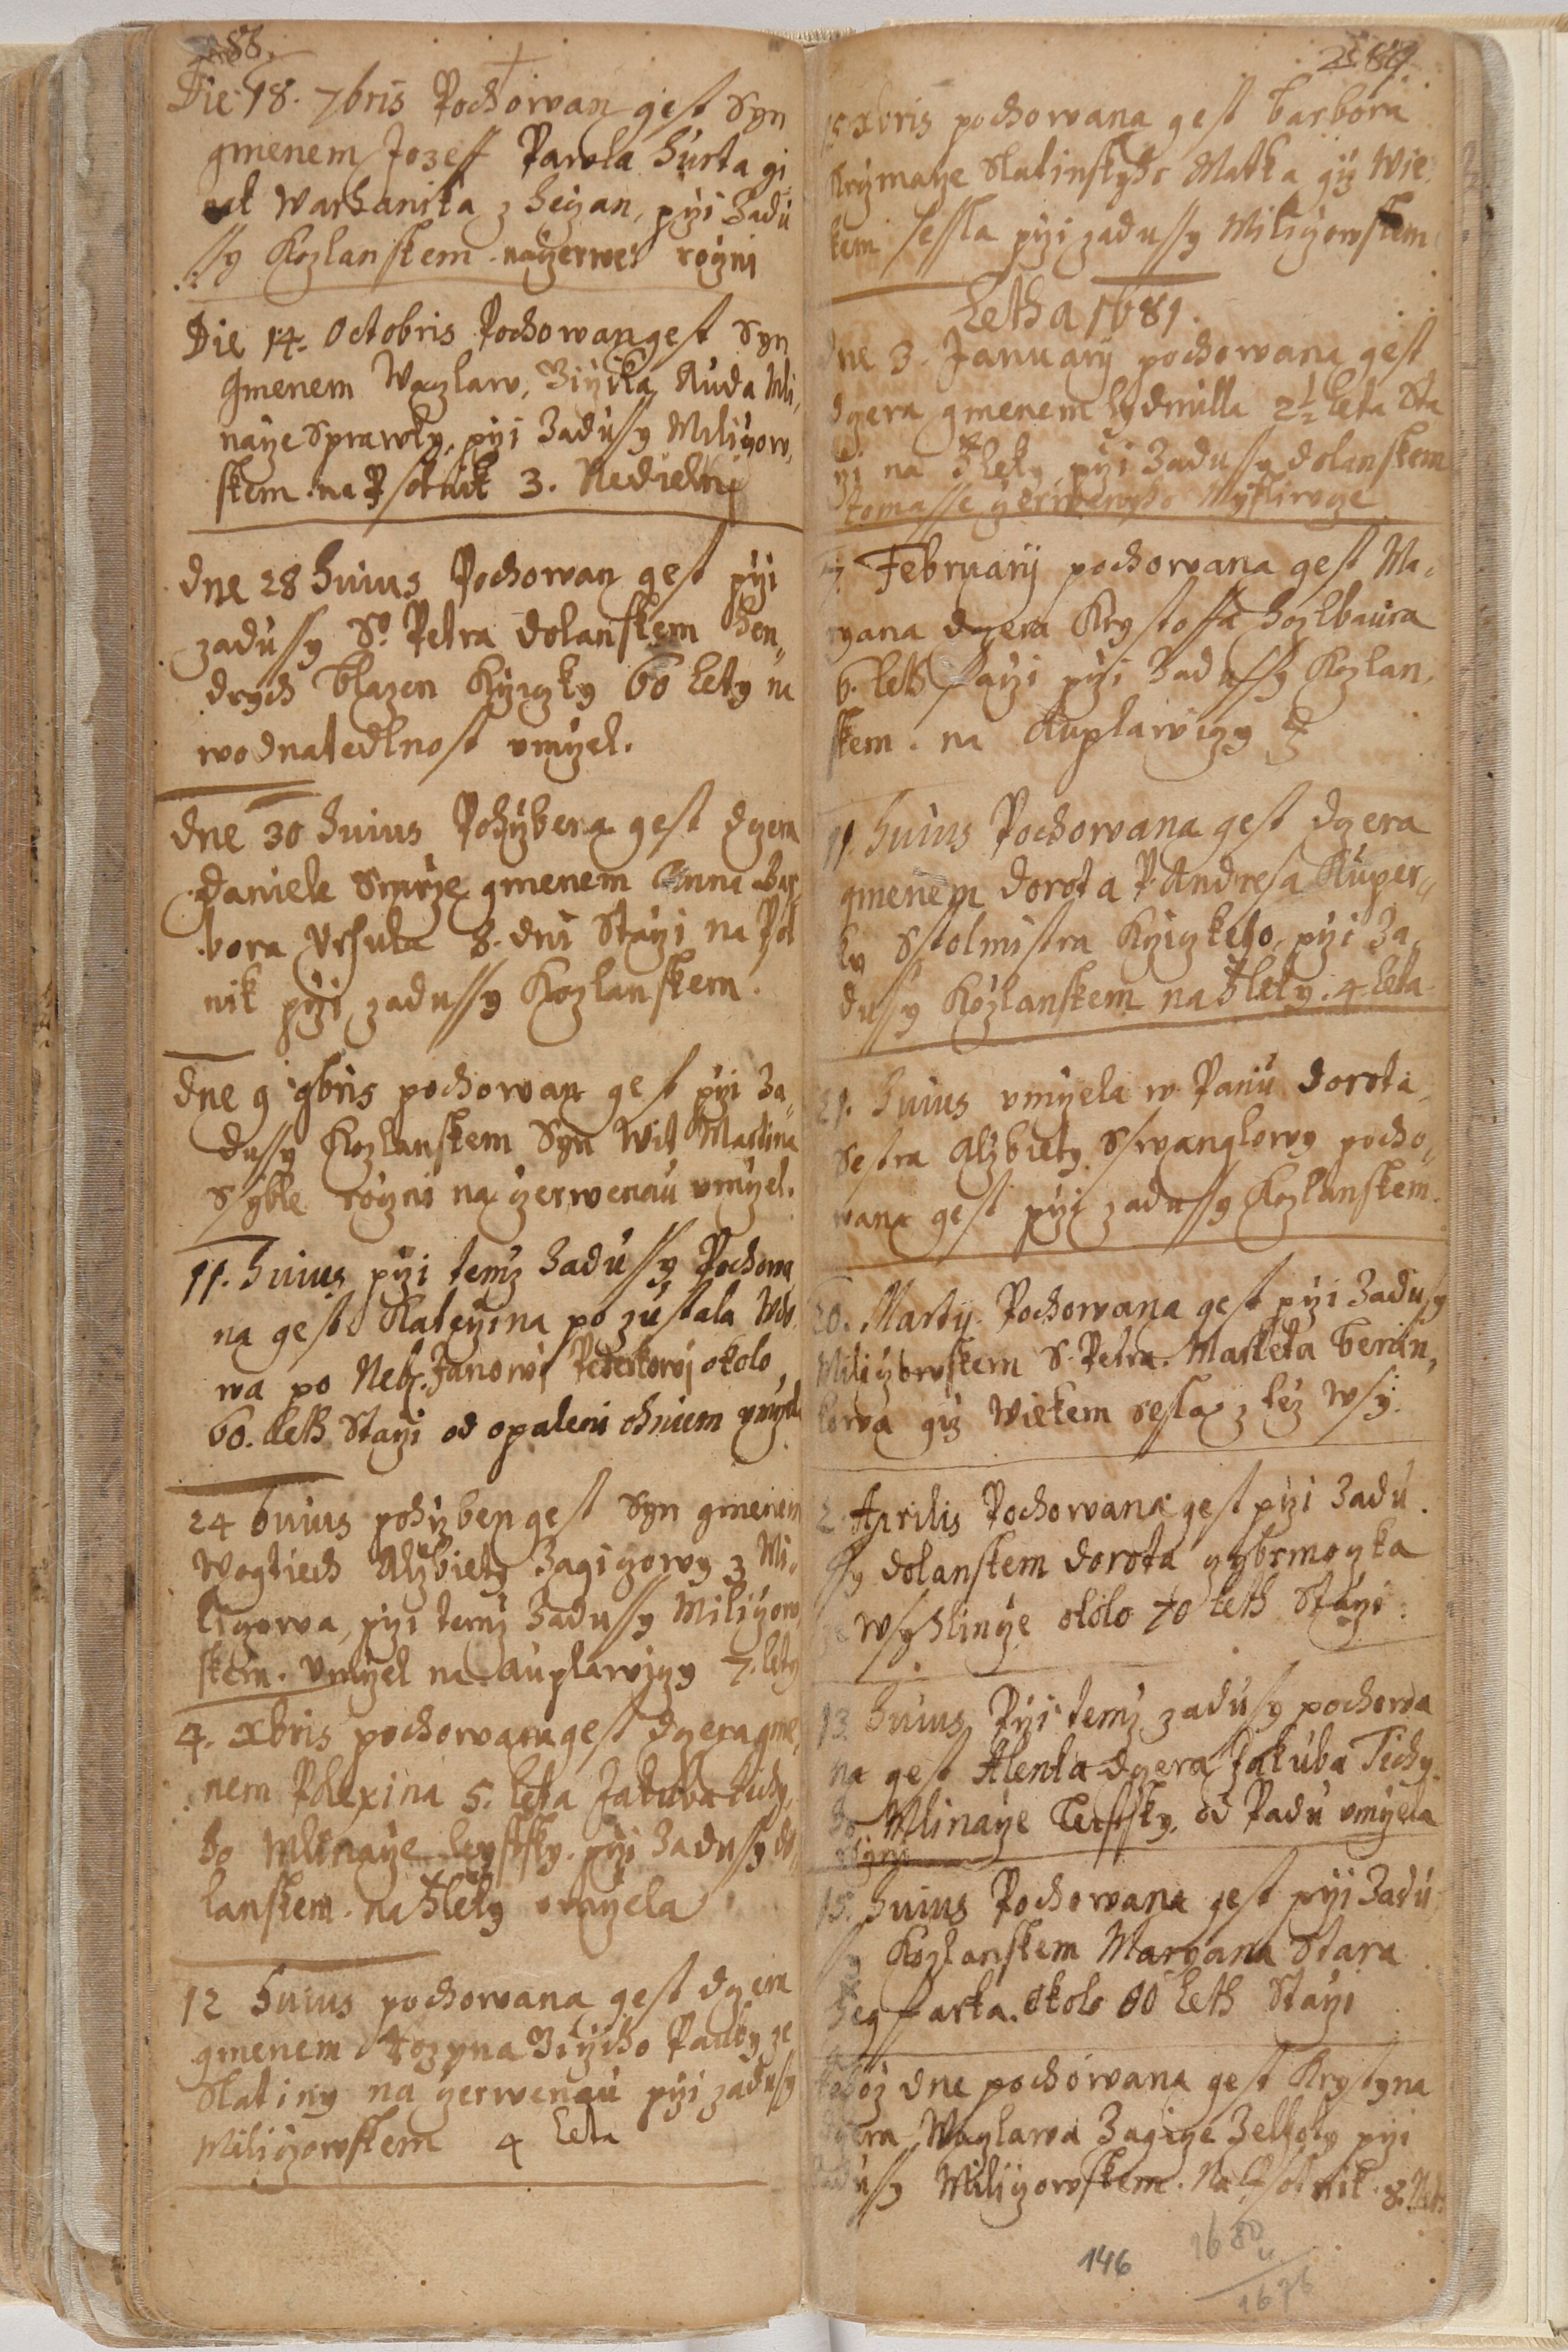 88.
Die 18. 7bris Pochowan gest Syn
gmenem Jozeff Pawla Hurta gi
nak Warhanika z Hegan, przi Zadu
ssy Kozlanskem. na czerwen roczni
Die 14. Octobris Pochowan gest Syn
gmenem Waczlaw, Jirzika Ruda Mli,
narze Sprawky, przi Zadussy Milicow,
skem. na Psotnik 3. Nedielni
dne 28 huius Pochowan gest przi
zadussy So. Petra dolanskem Hen,,
drych blazen Knizky 60 lety na
wodnatedlnost vmrzel.
dne 30 huius Pohrzbena gest dczera
daniele Smrze gmenem Anna Bar,
bora Vrsula 8. dni Starzi na Psot
nik przi zadussy Kozlanskem.
dne 9 9bris pochowan gest przi Za,,
dussy Kozlanskem Syn Wit Martina
roczni na czerwenau vmrzel.
11. huius przi temz Zadussy Pochowa
na gest Katerzina pozustala Wdo
wa po Neb. Janowi okolo
60. leth Starzi od opaleni ohniem vmrzela
24 huius pohrzben gest Syn gmenem
Wogtiech Alzbiety Zagiczowy z Mi,,
liczowa, przi temz Zadussy Miliczow,
skem. Vmrzel na Auplawiczy 7. lety
4. Xbris pochowana gest dczera gme,
nem Polexina 5. leta Jakuba tichy,
ho Mlinarze przi Zadussy do,,
lanskem. na Hlety vmrzela
12 huius pochowana gest dczera
gmenem Rozyna Jirziho Pauly ze
Slatiny na czerwenau przi zadussy
Miliczowskem 4 leta
289
15 Xbris pochowana gest Barbora
Slatinskyho Matka giz Wie,
kem sessla przi zadussy Miliczowskem
Letha 1681.
dne 3. January pochowana gest
dczera gmenem lydmilla 2½ leta Sta
rzi na Hlety przi Zadussy dolanskem
tomasse czerweneho Mysliwcze
February pochowana gest Ma,
ryana dczera Krystoffa Hozlbaura
6. leth starzi przi Zadussy Kozlan,
skem. na Auplawiczy
11. huius Pochowana gest dczera
gmenem dorota P. Andresa Kuper,,
ky Stolmistra Knizkeho, przi Za,
dussy Kozlanskem na Hlety. 4. leta
21. huius vmrzela w Panu dorota
Sestra Alzbiety Swanglowy pocho,,
wana gest przi zadussy Kozlanskem.
20. Marty. Pochowana gest przi Zadussy
Miliczowskem S. Petra. Marketa Beran,
kowa giz Wiekem sesla z tez Wsy.
2. Aprilis Pochowana gest przi Zadu
ssy dolanskem dorota
ze Wsy Hlincze okolo 70 leth Starzi.
13 huius Przi temz zadussy pochowa
na gest Alenka dczera Jakuba Tichy
ho Mlinarze od Padu vmrzela
15. huius Pochowana gest przi Zadu
ssy Kozlanskem Maryana Stara
okolo 80 leth Starzi
tehoz dne pochowana gest Krystyna
dczera Waczlawa Zagicze Zelkoty przi
Zadussy Miliczowskem. Na Psotnik. 8. Ned
146
1680
1676